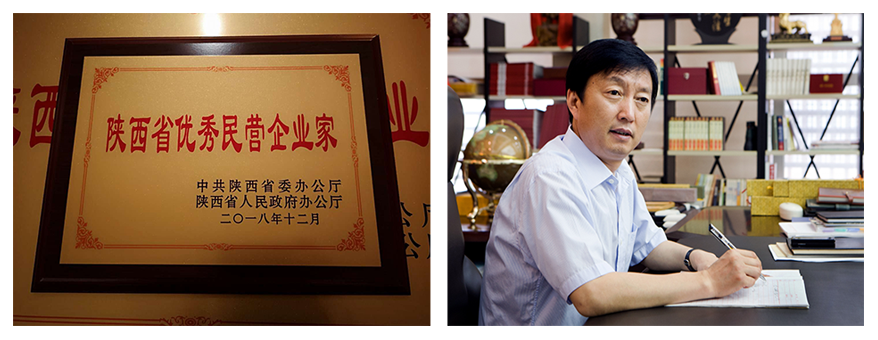 陕西省优秀民营企业家
中共陕西省委办公厅
陕西省人民政府办公厅
二〇一八年十二月